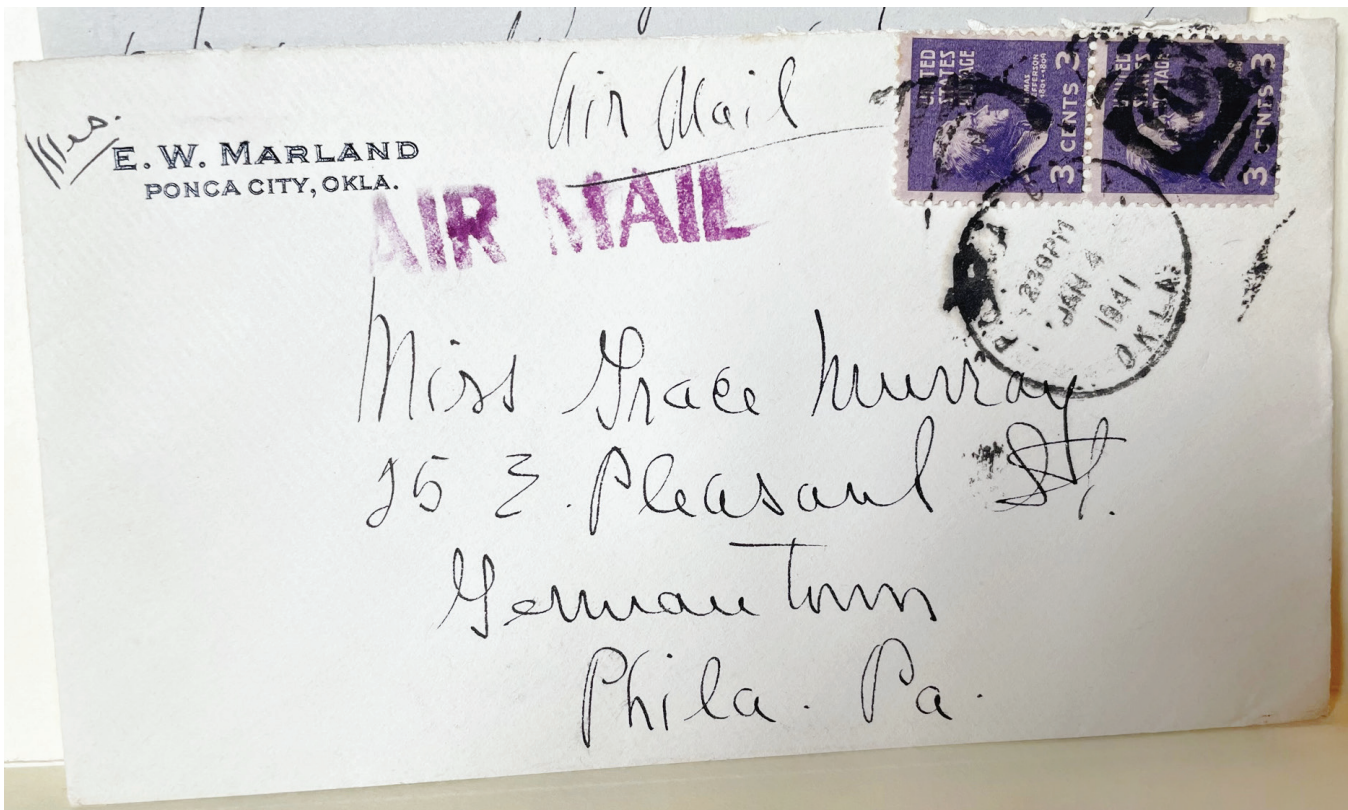 Mrs.
E. W. MARLAND
PONCA CITY, OKLA.
Air Mail
AIR MAIL
UNITED
STATES
POSTAGE
THOMAS
JEFFERSON
1801-1809
3 CENTS 3
UNITED
STATES
POSTAGE
3 CENTS 3
230 PM
JAN 4
1941
OKLA.
Miss Grace Murray
25 E. Pleasant St.
Germantown
Phila. Pa.